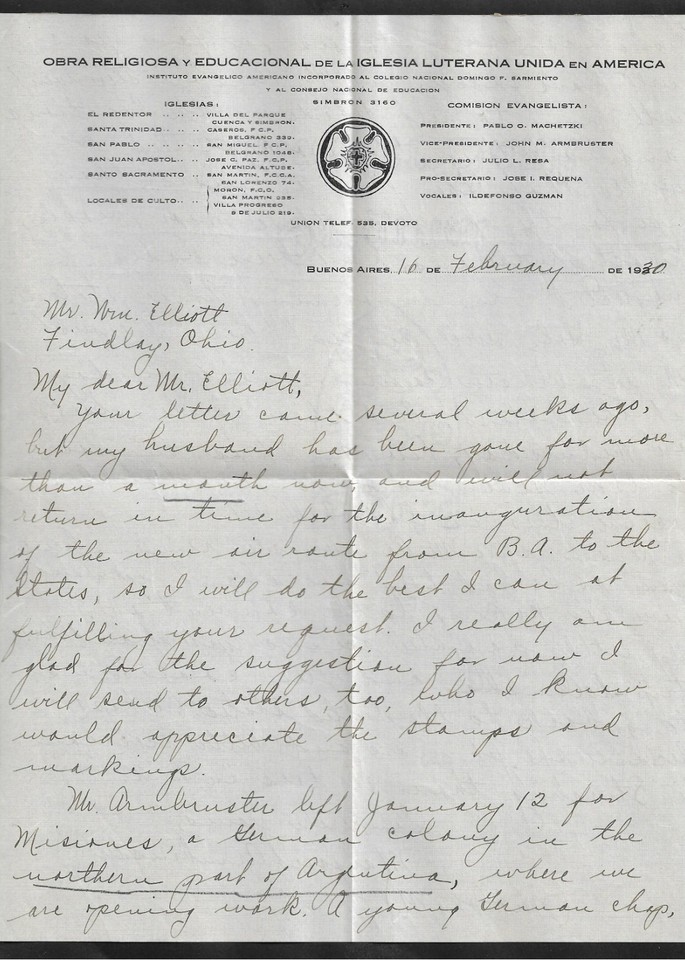 OBRA RELIGIOSA Y EDUCACIONAL DE LA IGLESIA LUTERANA UNIDA EN AMERICA
INSTITUTO EVANGELICO AMERICANO INCORPORADO AL COLEGIO NACIONAL DOMINGO F. SARMIENTO
Y AL CONSEJO NACIONAL DE EDUCACION
SIMBRON 3160
IGLESIAS:
EL REDENTOR .. .. .. VILLA DEL PARQUE
CUENCA Y SIMBRON.
SANTA TRINIDAD .. .. CASEROS, F.C.P.
BELGRANO 339.
SAN PABLO .. .. .. SAN MIGUEL, F.C.P.
BELGRANO 1048.
SAN JUAN APOSTOL .. .. JOSE C. PAZ, F.C.P.
AVENIDA ALTUBE.
SANTO SACRAMENTO .. .. SAN MARTIN, F.C.C.A.
SAN LORENZO 74.
LOCALES DE CULTO .. .. MORON, F.C.O.
SAN MARTIN 235.
VILLA PROGRESO
9 DE JULIO 219.
COMISION EVANGELISTA:
PRESIDENTE: PABLO O. MACHETZKI
VICE-PRESIDENTE: JOHN M. ARMBRUSTER
SECRETARIO: JULIO L. RESA
PRO-SECRETARIO: JOSE I. REQUENA
VOCALES: ILDEFONSO GUZMAN
UNION TELEF. 535, DEVOTO
BUENOS AIRES, 16 DE February DE 1930
Mr. Wm. Elliott
Findlay, Ohio.
My dear Mr. Elliott,
Your letter came several weeks ago,
but my husband has been gone for more
than a month now, and will not
return in time for the inauguration
of the new air route from B.A. to the
States, so I will do the best I can at
fulfilling your request. I really am
glad for the suggestion for now I
will send to others, too, who I know
would appreciate the stamps and
markings.
Mr. Armbruster left January 12 for
Misiones, a German colony in the
northern part of Argentina, where we
are opening work. A young German chap,